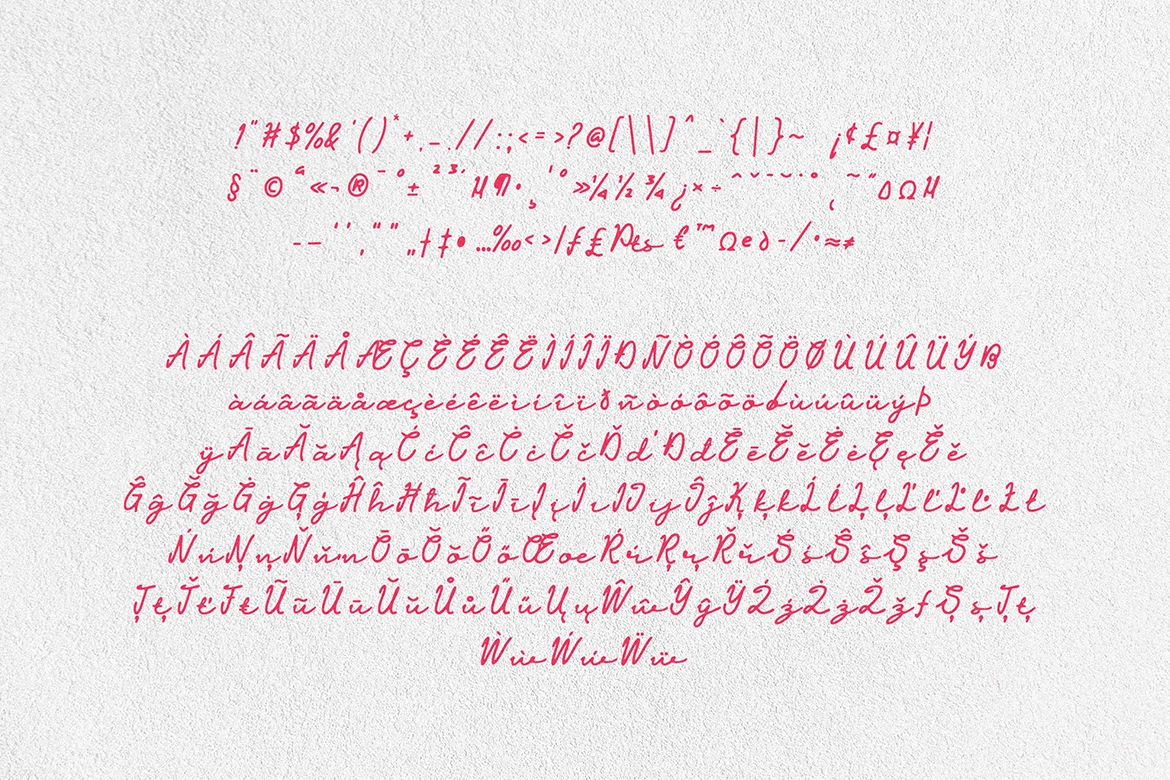 !"#$%&'()*+,-.//:;<=>?@[\\]^_`{|}~ ¡¢£¤¥¦
§¨©ª«¬®¯°±²³´µ¶•¸¹º»¼½¾¿×÷ˆˇ¯˘˙˚˛˜˝∆Ωµ
–—‘’‚“”„†‡•…‰‹›/ƒ₤₧€™Ωe∂-/·≈≠
ÀÁÂÃÄÅÆÇÈÉÊËÌÍÎÏÐÑÒÓÔÕÖØÙÚÛÜÝß
àáâãäåæçèéêëìíîïðñòóôõöøùúûüýþ
ÿĀāĂăĄąĆćĈĉĊċČčĎďĐđĒēĔĕĖėĘęĚě
ĜĝĞğĠġĢģĤĥĦħĨĩĪīĮįİıIJijĴĵĶķkĹĺĻļĽľĿŀŁł
ŃńŅņŇňŉŌōŎŏŐőŒœŔŕŖŗŘřŚśŜŝŞşŠš
ŢţŤťŦŧŨũŪūŬŭŮůŰűŲųŴŵŶŷŸŹźŻżŽžƒȘșȚț
ẀẁẂẃẄẅ